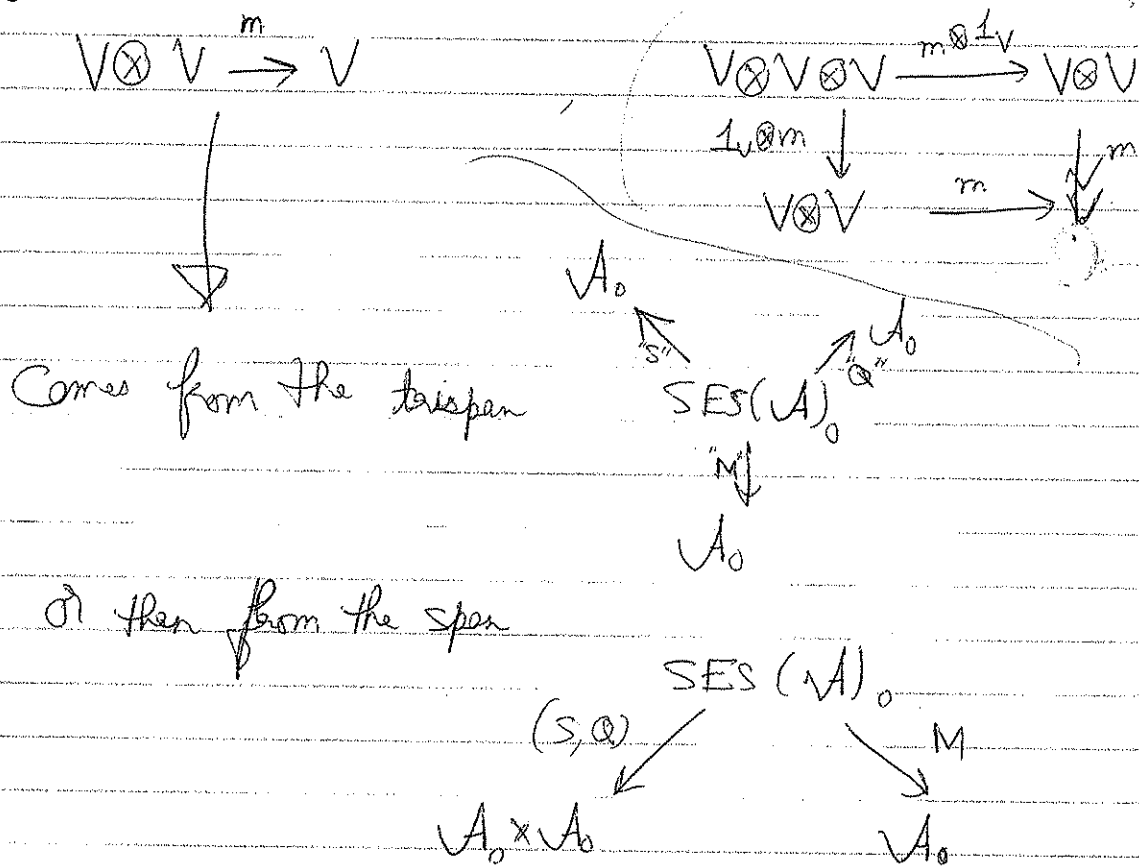 V⊗V —m→ V
V⊗V⊗V —m⊗1_V→ V⊗V
1_V⊗m ↓ ↓ m
V⊗V —m→ V
A₀
"S" "Q" A₀
Comes from the trispan SES(A)₀
"M" ↓
A₀
or then from the span
SES(A)₀
(S,Q) M
A₀×A₀ A₀